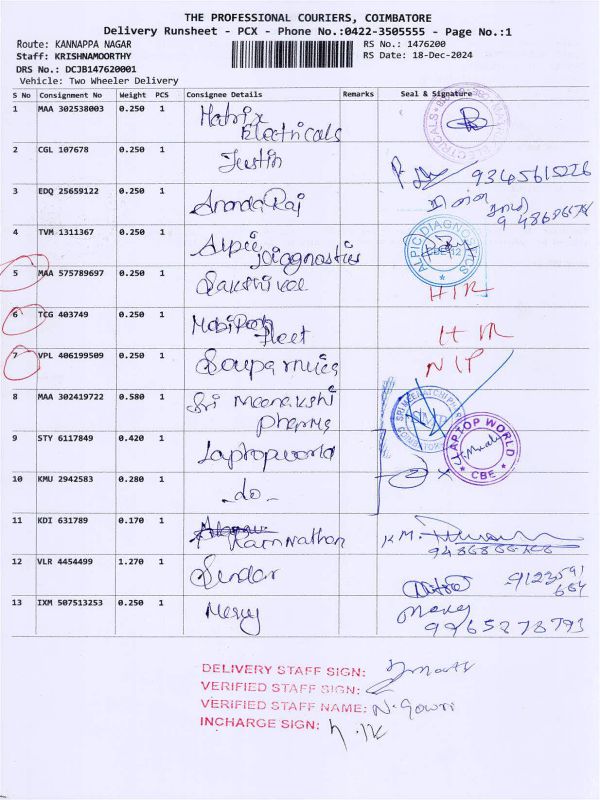 THE PROFESSIONAL COURIERS, COIMBATORE
Delivery Runsheet - PCX - Phone No.:0422-3505555 - Page No.:1
Route: KANNAPPA NAGAR RS No.: 1476200
Staff: KRISHNAMOORTHY RS Date: 18-Dec-2024
DRS No.: DCJB147620001
Vehicle: Two Wheeler Delivery
S No Consignment No Weight PCS Consignee Details Remarks Seal & Signature
1 MAA 302538003 0.250 1 Matrix
Electricals
2 CGL 107678 0.250 1 Justin
9345615226
3 EDQ 25659122 0.250 1 Ananda Raj
4 TVM 1311367 0.250 1 Alpic
Diagnostics ALPIC DIAGNOSTICS
5 MAA 575789697 0.250 1 Sakthivel
6 TCG 403749 0.250 1
fleet
7 VPL 406199509 0.250 1 Souparnika
8 MAA 302419722 0.580 1 Sri Meenakshi
pharma
9 STY 6117849 0.420 1 Laptopworld LAPTOP WORLD
CBE
10 KMU 2942583 0.280 1 -do-
11 KDI 631789 0.170 1 Ramnathan K.M.
12 VLR 4454499 1.270 1
13 IXM 507513253 0.250 1 Mercy Mercy
9965278793
DELIVERY STAFF SIGN:
VERIFIED STAFF SIGN:
VERIFIED STAFF NAME: N. Gowri
INCHARGE SIGN: